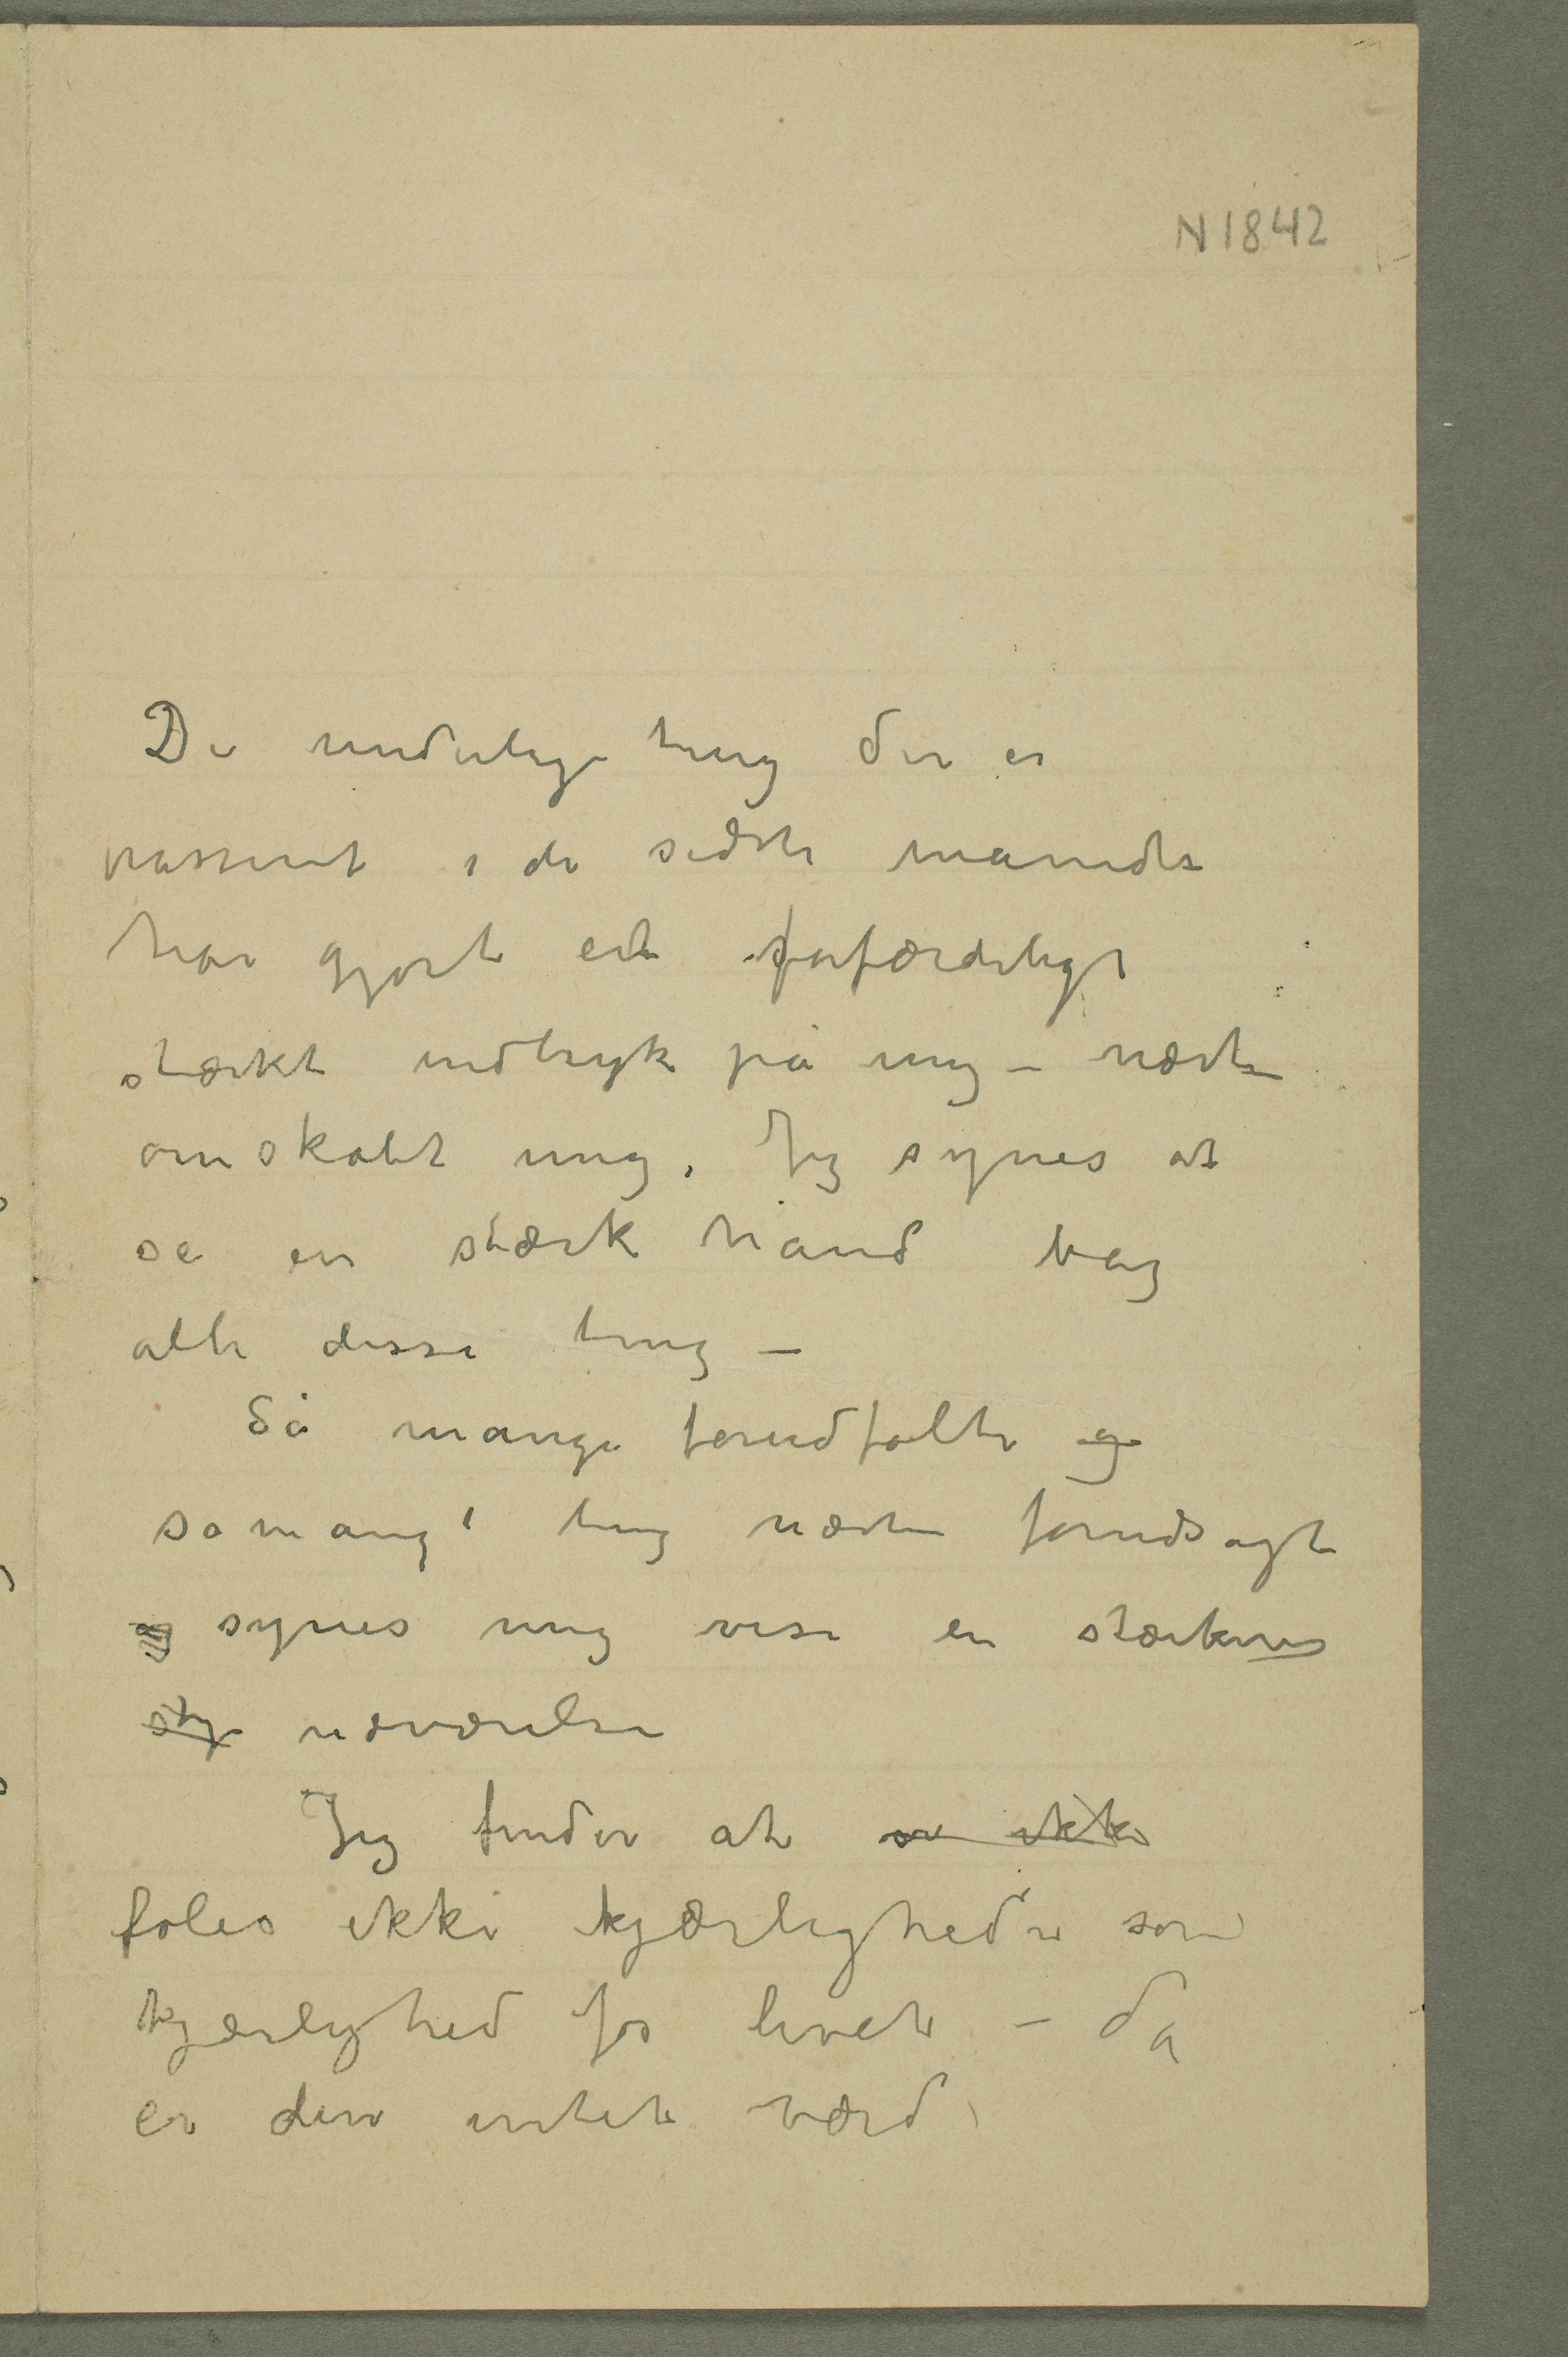 N 1842
De underlige ting der er
passeret i de sidste måneder
har gjort et forfærdeligt
stærkt indtryk på mig – næsten
omskabt mig. Jeg synes at
se en stærk hånd bag
alle disse ting –
Så mange forudfølte og
så mange ting næsten forudsagt
og synes mig vise en stærkeres
nærværelse
Jeg finder at se ikke
føles ikke kjærligheden som
kjærlighed for livet – da
er den intet værd